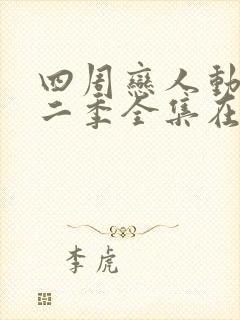 四周戀人動
二季全集在
李虎